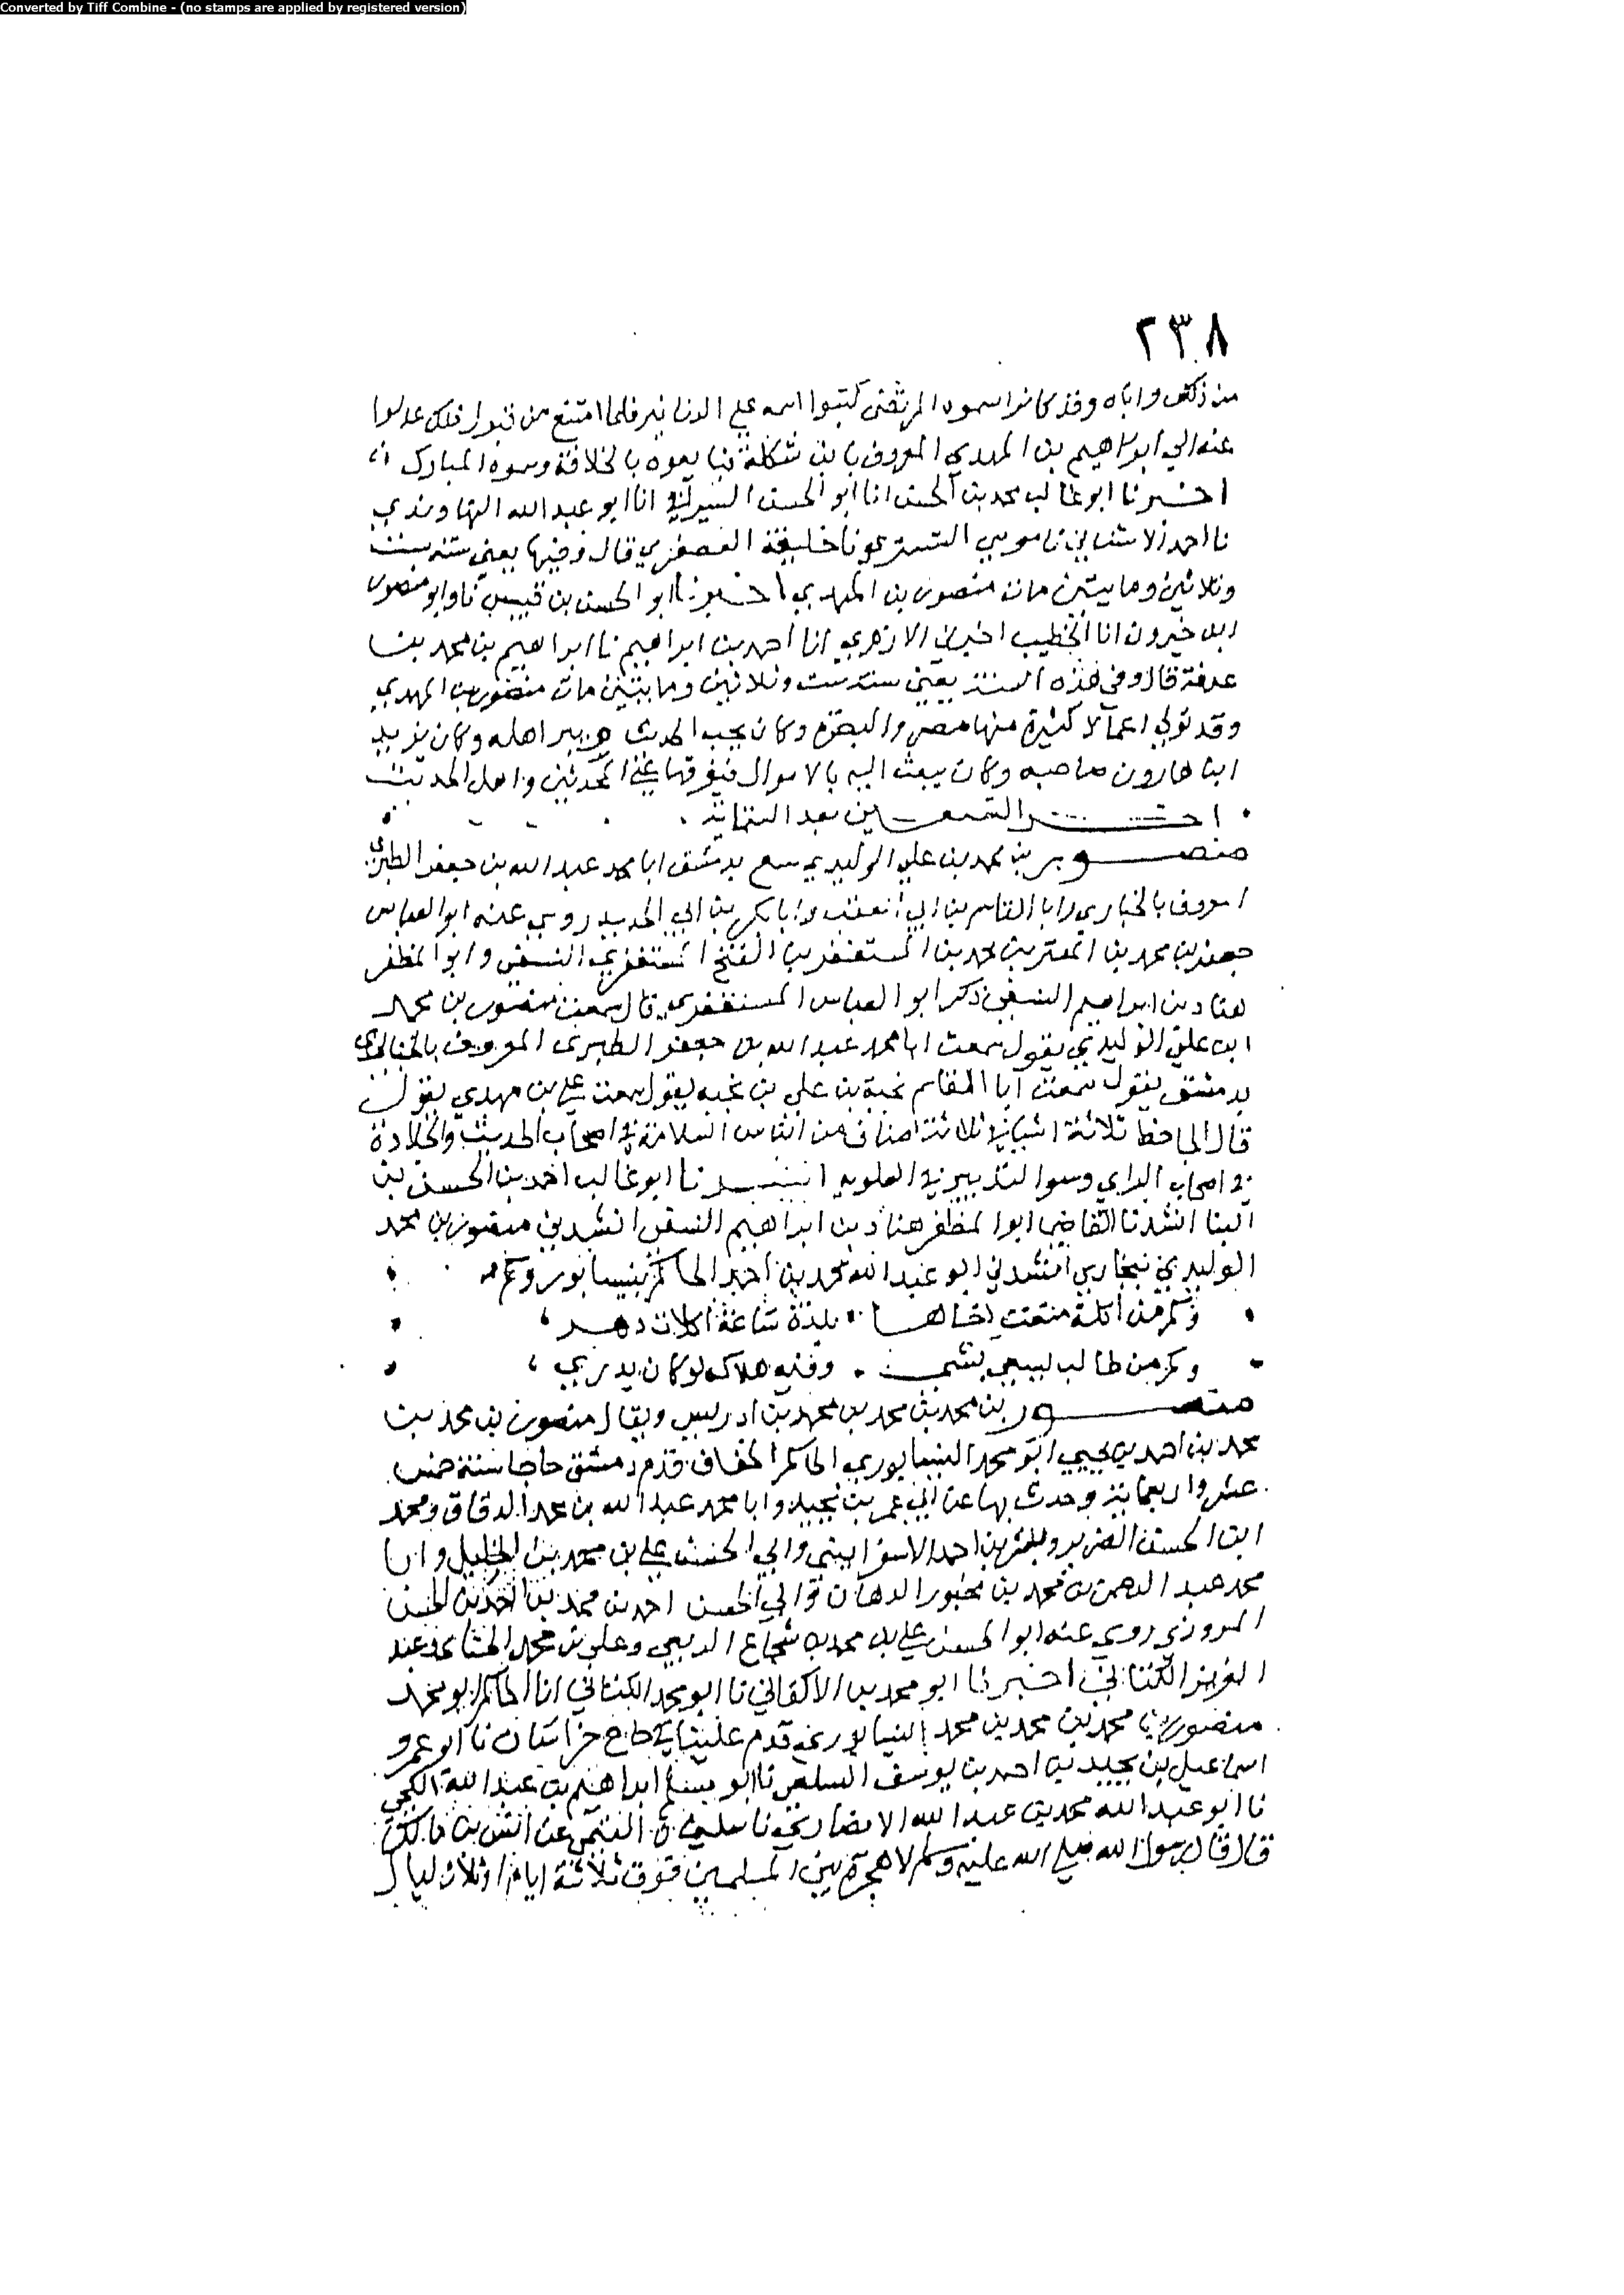 Converted by Tiff Combine - (no stamps are applied by registered version)
٢٣٨
من ذلك واباه وقد كانوا سموه المرتضى كتبوا اسمه علي الدنانير فلما امتنع من قبول ذلك عدلوا
عنه الي ابراهيم بن المهدي المعروف بابن شكلة فبايعوه بالخلافة وسموه المبارك
اخبرنا ابو غالب محمد بن الحسن انا ابو الحسن السيرافي انا ابو عبد الله النهاوندي
نا احمد الاشناني نا موسي التستري نا خليفة العصفري قال وفيها يعني سنة ست
وثلاثين ومايتين مات منصور بن المهدي اخبرنا ابو الحسن بن قبيس نا وابو منصور
ابن خيرون انا الخطيب اخبرني الازهري انا احمد بن ابراهيم نا ابراهيم بن محمد بن
عرفة قال وفي هذه السنة يعني سنة ست وثلاثين ومايتين مات منصور بن المهدي
وقد تولي اعمالا كثيرة منها مصر والبصرة وكان يحب الحديث ويبر اهله وكان يزيد
ابن هارون صاحبه وكان يبعث اليه بالاموال فيفرقها علي المحدثين واهل الحديث
اخر التسعين بعد الثمانية
منصور بن محمد بن علي الوليدي سمع بدمشق ابا محمد عبد الله بن جعفر الطبري
المعروف بالخبازي وابا القاسم بن ابي العقب وابا بكر بن ابي الحديد روي عنه ابو العباس
جعفر بن محمد بن المعتز بن محمد بن المستغفر بن الفتح المستغفري النسفي وابو المظفر
هناد بن ابراهيم النسفي ذكر ابو العباس المستغفري قال سمعت منصور بن محمد
ابن علي الوليدي يقول سمعت ابا محمد عبد الله بن جعفر الطبري المعروف
بدمشق يقول سمعت ابا القاسم نجبة بن علي بن نجبه يقول سمعت علي بن مهدي يقول
قال الجاحظ ثلاثة اشيا في ثلاثة اصناف من الناس السلامة في اصحاب الحديث والجلادة
في اصحاب الراي وسوا التدبير في العلويه انشدنا ابو غالب احمد بن الحسن بن
البنا انشدنا القاضي ابو المظفر هناد بن ابراهيم النسفي انشدني منصور بن محمد
الوليدي ببخاري انشدني ابو عبد الله محمد بن احمد الحاكم بنيسابور
وكم من اكلة منعت اخاها بلذة ساعة اكلات دهر
وكم من طالب يسعي بشي وفيه هلاكه لو كان يدري
منصور بن محمد بن محمد بن محمد بن ادريس ويقال منصور بن محمد بن
محمد بن احمد بن يحيي ابو محمد النيسابوري الحاكم الخفاف قدم دمشق حاجا سنة خمس
عشر واربعماية وحدث بها عن ابي عمر بن نجيد وابا محمد عبد الله بن محمد الدقاق ومحمد
ابن الحسن الضرير وبشر بن احمد الاسفراييني وابي الحسن علي بن محمد بن الخليل وابا
محمد عبد الرحمن بن محمد بن محبور الدهان وابي الحسن احمد بن محمد بن احمد بن الحسن
المروزي روي عنه ابو الحسن علي بن محمد بن شجاع الربعي وعلي بن محمد الحنائي وعبد
العزيز الكتاني اخبرنا ابو محمد بن الاكفاني نا ابو محمد الكتاني انا الحاكم ابو محمد
منصور بن محمد بن محمد بن محمد النيسابوري قدم علينا في حاج خراسان نا ابو عمرو
اسماعيل بن نجيد بن احمد بن يوسف السلمي نا ابو مسلم ابراهيم بن عبد الله الكجي
نا ابو عبد الله محمد بن عبد الله الانصاري نا سليمان التيمي عن انس بن مالك
قال قال رسول الله صلي الله عليه وسلم لا هجرة بين المسلمين فوق ثلاثة ايام او ثلاث ليال